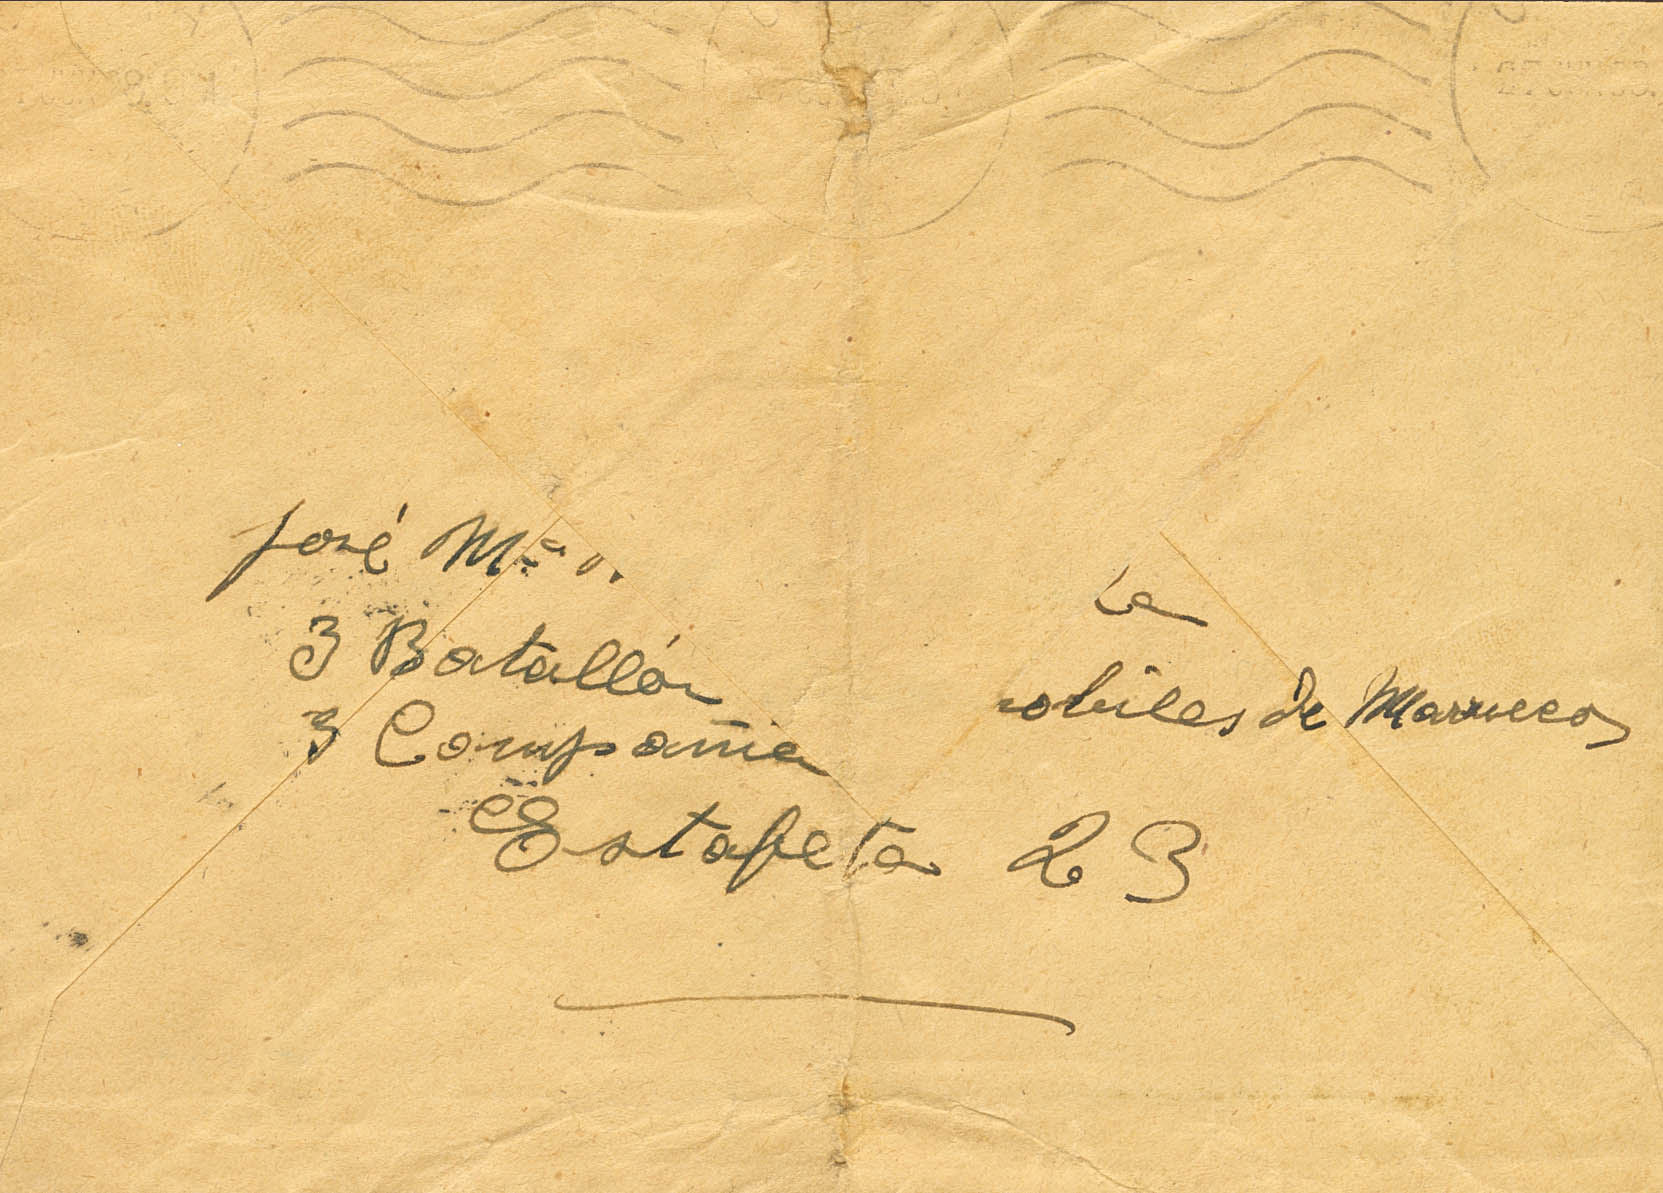 José Mª
la
3 Batallón
obiles de Marruecos
3 Compañia
Estafeta 23